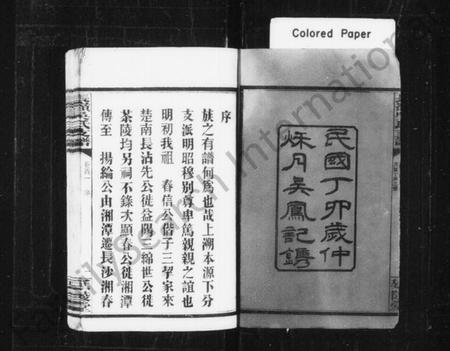 Colored Paper
民國丁卯歲仲
秌月吳鳳記鐫
序
族之有譜何爲也哉上溯本源下分
支派明昭穆別尊卑篤親親之誼也
明初我祖 春信公偕子三挈家來
楚南長沾先公徙益陽三綿世公徙
茶陵均另祠不錄次顯春公徙湘潭
傳至 揚綸公由湘潭遷長沙湘春
FamilySearch International